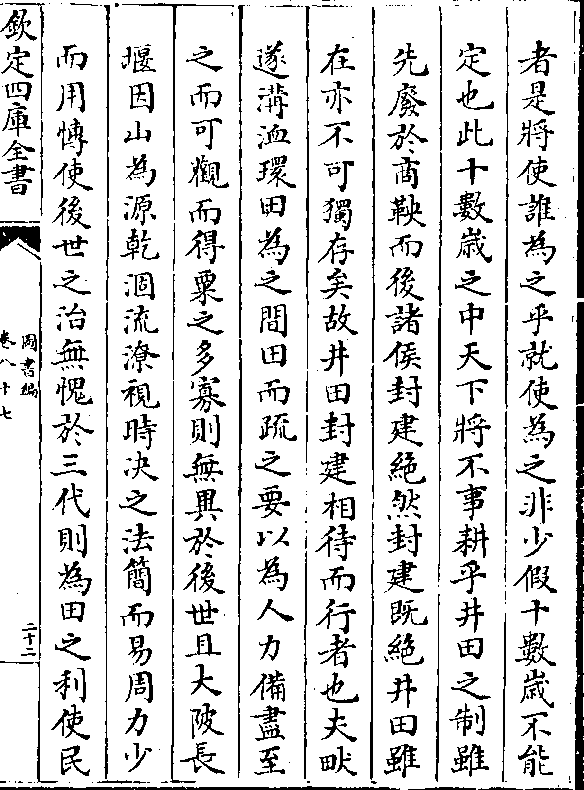 者是將使誰為之乎就使為之非少假十數嵗不能
定也此十數嵗之中天下將不事耕乎井田之制雖
先廢於商鞅而後諸侯封建絶然封建既絶井田雖
在亦不可獨存矣故井田封建相待而行者也夫畎
遂溝洫環田為之間田而疏之要以為人力備盡至
之而可觀而得粟之多寡則無異於後世且大陂長
堰因山為源乾涸流潦視時决之法簡而易周力少
而用慱使後世之治無愧於三代則為田之利使民
欽定四庫全書
圖書編
卷八十七
二十二